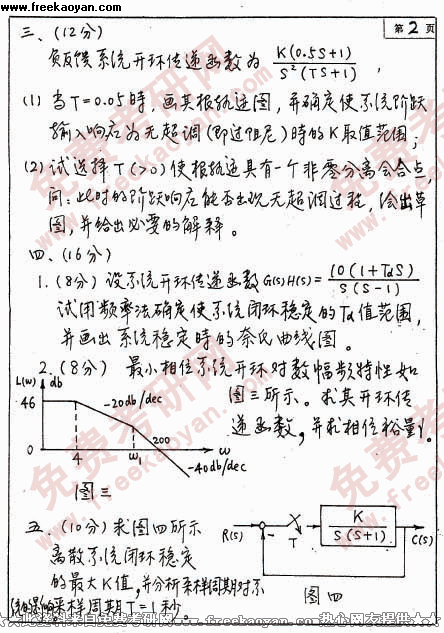 www.freekaoyan.com
第2页
三、(12分)
负反馈系统开环传递函数为 K(0.5S+1) / S²(TS+1) ,
(1) 当T=0.05时,画其根轨迹图,并确定使系统阶跃
输入响应为无超调(即过阻尼)时的K取值范围;
(2) 试选择T(>0)使根轨迹具有一个非零分离会合点,
问:此时的阶跃响应能否出现无超调过程,绘出草
图,并给出必要的解释。
四、(16分)
1. (8分) 设系统开环传递函数G(S)H(S)= 10(1+TdS) / S(S-1)
试用频率法确定使系统闭环稳定的Td值范围,
并画出系统稳定时的奈氏曲线图。
2. (8分) 最小相位系统开环对数幅频特性如
图三所示。求其开环传
递函数,并求相位裕量γ。
L(w) db
46
-20db/dec
0
4
w₁
200
w
-40db/dec
图三
五、(10分) 求图四所示
离散系统闭环稳定
的最大K值,并分析采样周期对系
采样周期T=1秒。
R(S)
T
K / S(S+1)
C(S)
图四
免费考研网
www.freekaoyan.com